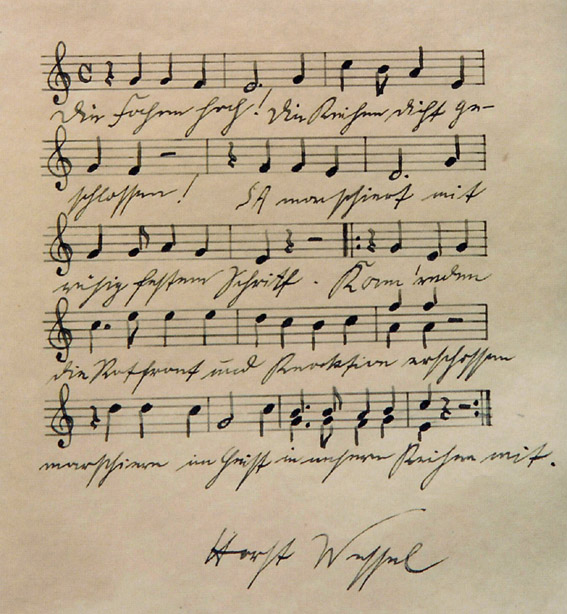 Die Fahne hoch! Die Reihen dicht ge-
schlossen! SA marschiert mit
ruhig festem Schritt. Kam'raden
die Rotfront und Reaktion erschossen
marschiern im Geist in unsern Reihen mit.
Horst Wessel